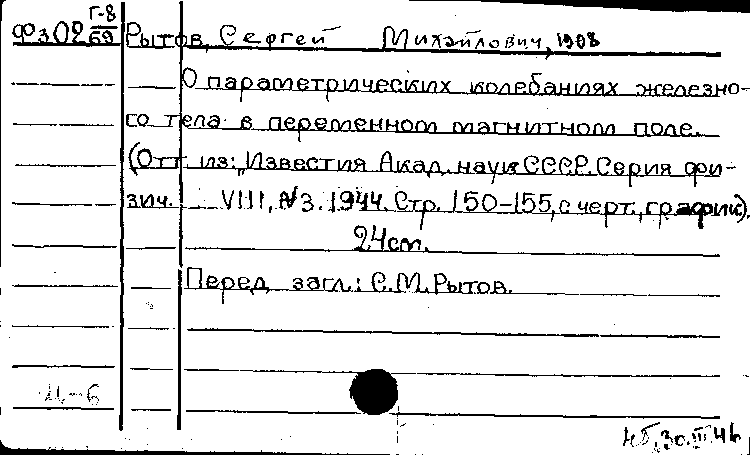 Г-8
Фз02 69 Рытов, Сергей Михайлович, 1908
О параметрических колебаниях железно-
го тела в переменном магнитном поле.
(Отт. из: „Известия Акад. наук СССР. Серия фи-
зич. VIII, №3. 1944. Стр. 150-155, с черт., график).
24 cm.
Перед загл.: С.М. Рытов.
30.III.46